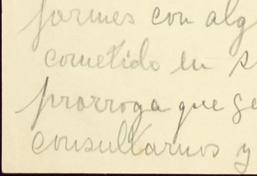 formes con alg
cometido en s
prorroga que se
consultarnos y